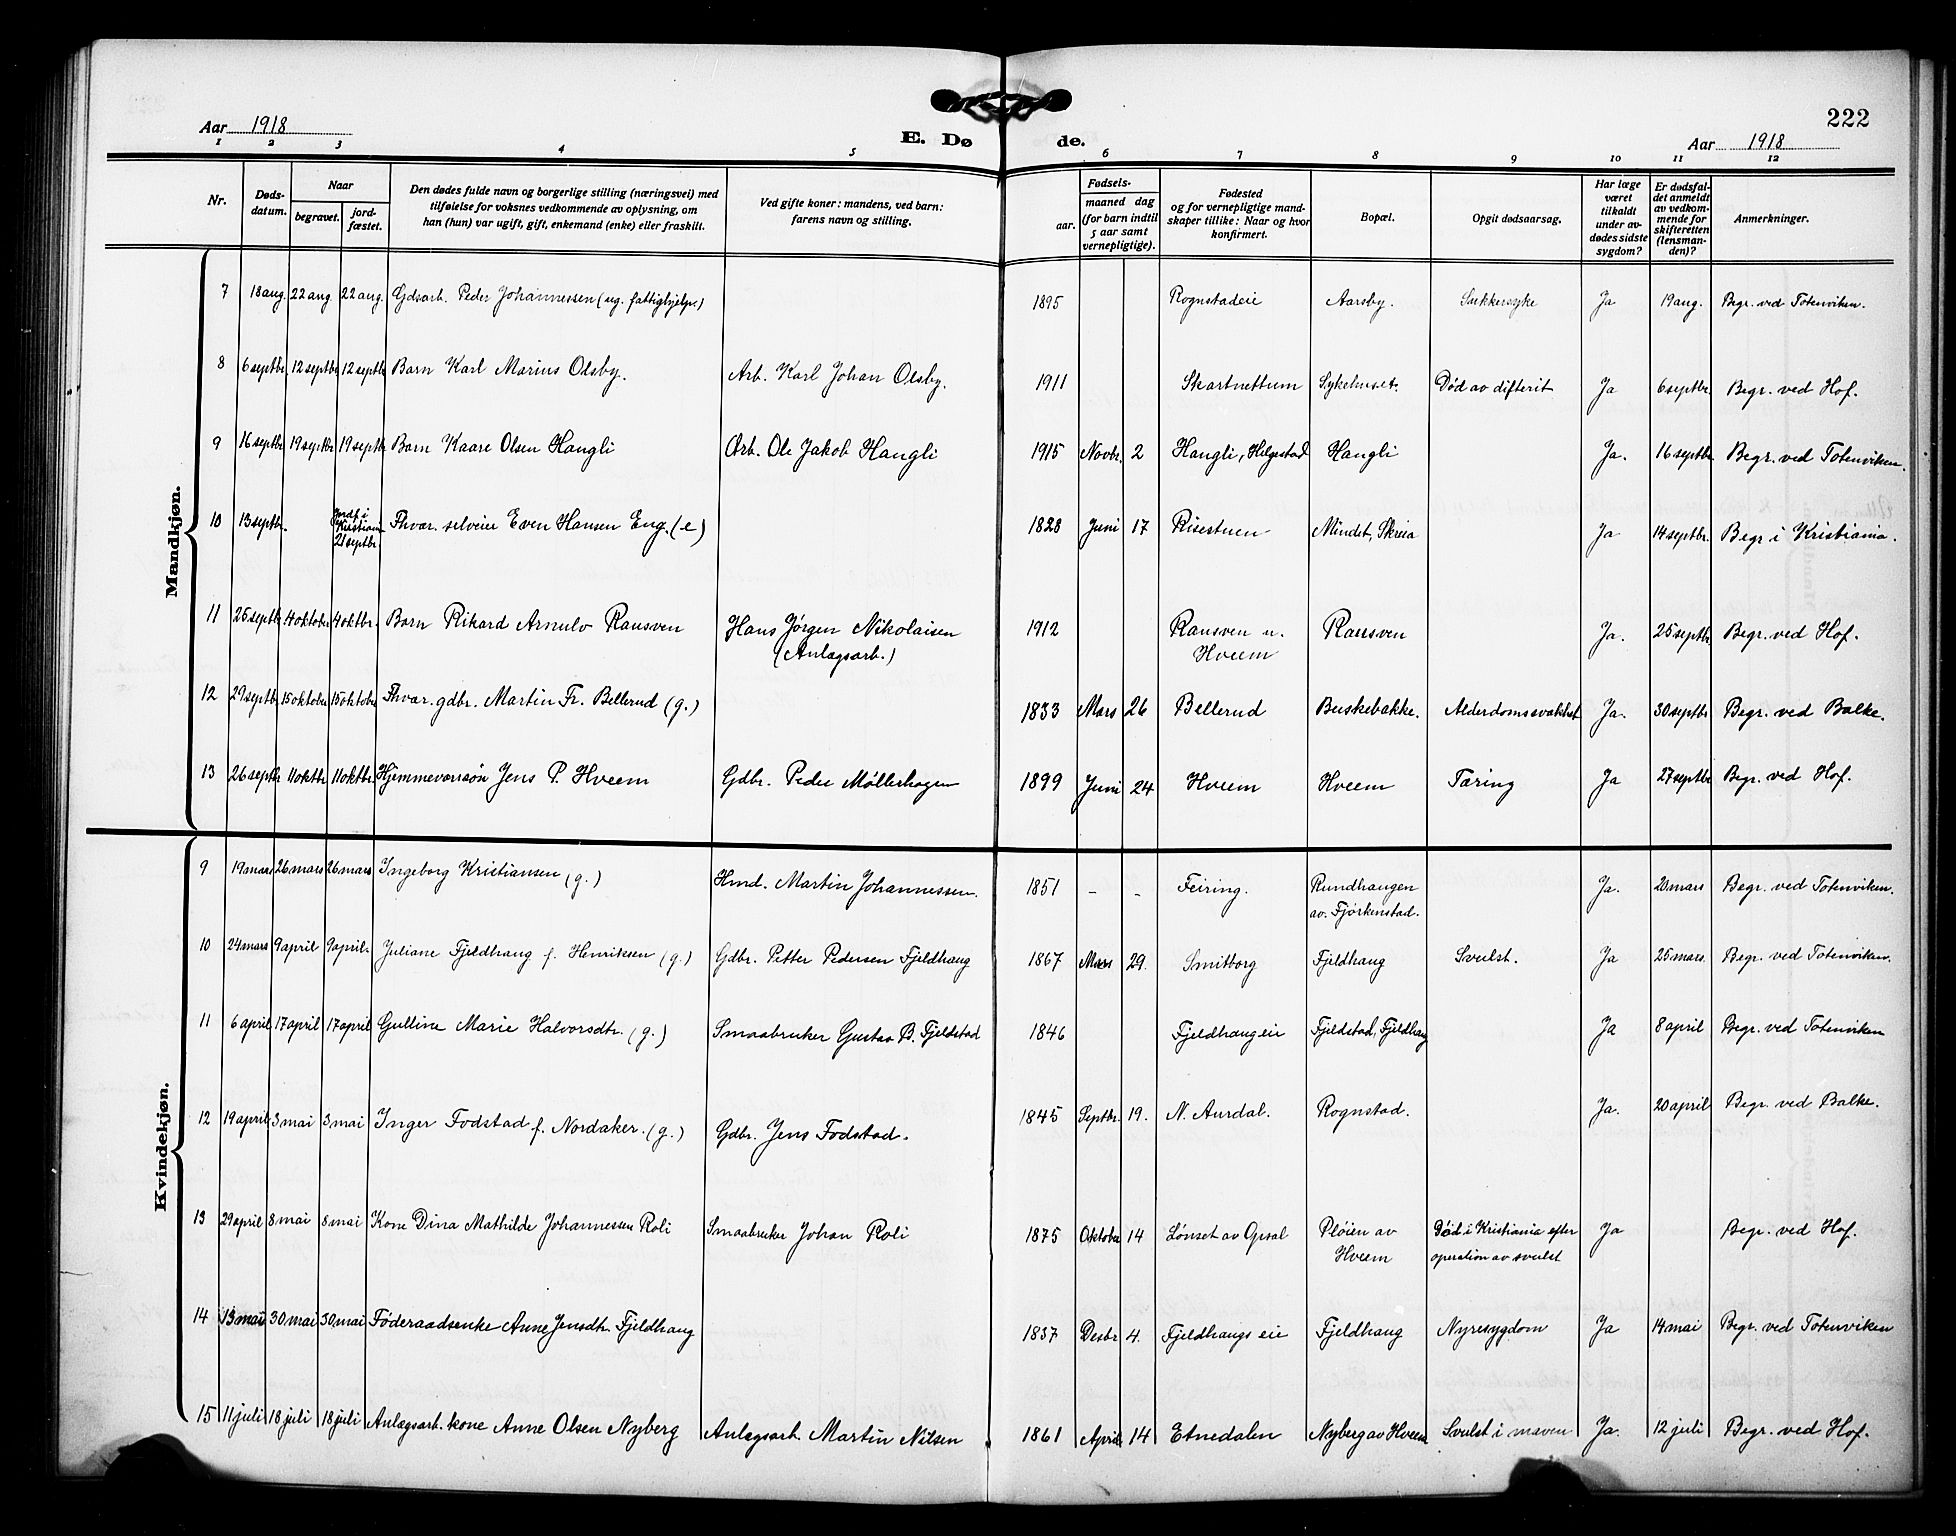 Aar 1918
E. Døde.
222
Aar 1918
1 2 3 4 5 6 7 8 9 10 11 12
Nr. | Døds-datum. | Naar begravet. | jord-fæstet. | Den dødes fulde navn og borgerlige stilling (næringsvei) med tilføielse for voksnes vedkommende av oplysning, om han (hun) var ugift, gift, enkemand (enke) eller fraskilt. | Ved gifte koner: mandens, ved barn: farens navn og stilling. | Fødsels- aar. | maaned dag (for barn indtil 5 aar samt vernepligtige). | Fødested og for vernepligtige mand-skaper tillike: Naar og hvor konfirmert. | Bopæl. | Opgit dødsaarsag. | Har læge været tilkaldt under av-dødes sidste sygdom? | Er dødsfal-det anmeldt av vedkom-mende for skifteretten (lensman-den)? | Anmerkninger.
Mandkjøn.
7 18 aug. 22 aug. 22 aug. Gdsarb. Peder Johannessen (ug. fattighjelp.) 1895 Rognstadeie Aarsby. Sukkersyke Ja 19 aug. Begr. ved Totenviken.
8 6 septbr. 12 septbr 12 septbr Barn Karl Marius Olsby. Arb. Karl Johan Olsby. 1911 Skartnettum Sykehuset. Død av difterit Ja 6 septbr. Begr. ved Hof.
9 16 septbr 19 septbr 19 septbr Barn Kaare Olsen Haugli Arb. Ole Jakob Haugli 1915 Novbr. 2 Haugli, Helgestad Haugli Ja. 16 septbr. Begr. ved Totenviken.
10 13 septbr. Jordf. i Kristiania 21 septbr. Fhvar. selveier Even Hansen Eng. (e) 1828 Juni 17 Risestuen Mindet, Skreia Ja 14 septbr. Begr. i Kristiania.
11 25 septbr 4 oktober 4 oktbr. Barn Rikard Arnulv Rausven Hans Jørgen Nikolaisen (Anlægsarb.) 1912 Rausven u. Hveem Rausven Ja. 25 septbr. Begr. ved Hof.
12 29 septbr 15 oktober 15 oktober Fhvar. gdbr. Martin Fr. Bellerud (g.) 1833 Mars 26 Bellerud Buskebakke. Alderdomssvakhet Ja. 30 septbr Begr. ved Balke.
13 26 septbr 11 oktbr 11 oktbr Hjemmev. søn Jens P. Hveem Gdbr. Peder Møllerhagen 1899 Juni 24 Hveem Hveem Tæring Ja 27 septbr Begr. ved Hof.
Kvindekjøn.
9 19 mars 26 mars 26 mars Ingeborg Kristiansen (g.) Hmd. Martin Johannessen. 1851 - - Feiring. Rundhaugen av. Fjørkenstad. Ja. 20 mars Begr. ved Totenviken.
10 24 mars 9 april 9 april. Juliane Fjeldhaug f. Henriksen (g.) Gdbr. Petter Pedersen Fjeldhaug 1867 Mars 29. Smitborg Fjeldhaug Svulst. Ja 25 mars. Begr. ved Totenviken.
11 6 april 17 april 17 april Gulline Marie Halvorsdtr. (g.) Smaabruker Gustav B. Fjeldstad 1846 Fjeldhaugeie Fjeldstad, Fjeldhaug Ja 8 april Begr. ved Totenviken
12 19 april 3 mai 3 mai Inger Fodstad f. Nordaker. (g.) Gdbr. Jens Fodstad. 1845 Septbr. 19. N. Aurdal. Rognstad. Ja. 20 april Begr. ved Balke.
13 29 april 8 mai 8 mai Kone Dina Mathilde Johannessen Roli Smaabruker Johan Roli 1875 Oktober 14 Lønset av Opsal Pløien av Hveem Død i Kristiania efter operation av svulst Ja Begr. ved Hof.
14 13 mai 30 mai 30 mai Føderaadsenke Anne Jensdtr. Fjeldhaug 1837 Desbr 4. Fjeldhaugs eie Fjeldhaug Nyresygdom Ja 14 mai Begr. ved Totenviken
15 11 juli 18 juli 18 juli Anlægsarb. kone Anne Olsen Nyberg Anlægsarb. Martin Nilsen 1861 April 14 Etnedalen Nyberg av Hveem Svulst i maven Ja. 12 juli Begr. ved Hof.